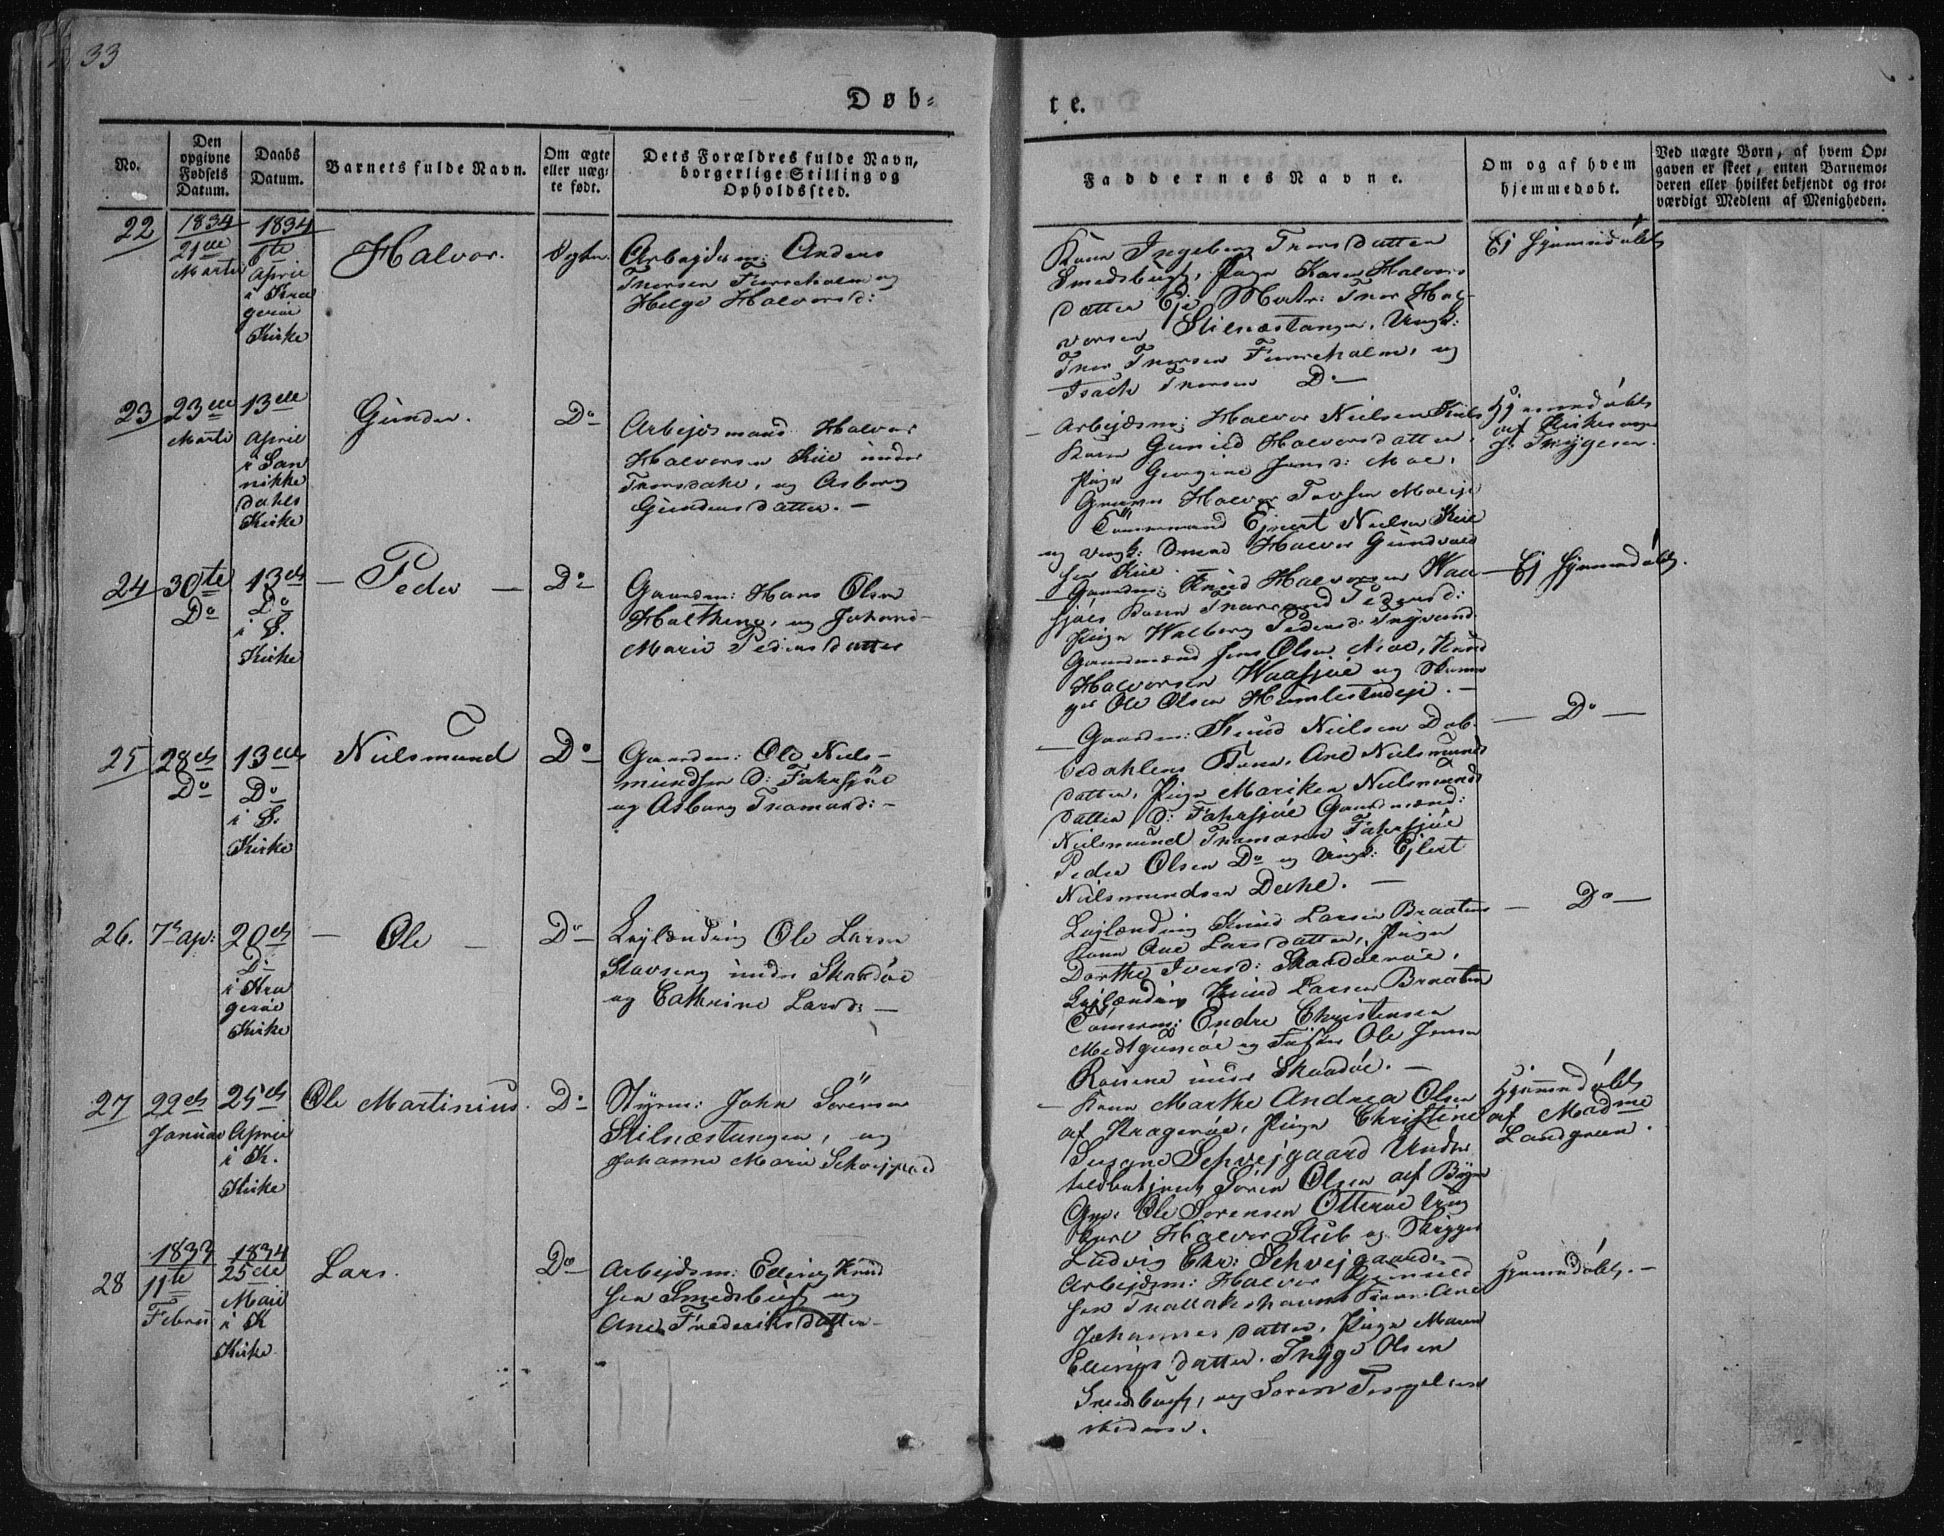 33
Døb-
te.
No.
Den
opgivne
Fødsels
Datum.
Daabs
Datum.
Barnets fulde Navn.
Om ægte
eller uæg-
te født.
Dets Forældres fulde Navn,
borgerlige Stilling og
Opholdssted.
Faddernes Navne.
Om og af hvem
hjemmedøbt.
Ved uægte Børn, af hvem Op-
gaven er skeet, enten Barnemo-
deren eller hvilket bekjendt og tro-
værdigt Medlem af Menigheden.
22
1834
21de
Marti
1834
6te
April
i Kra
gerøe
Kirke
Halvor.
Ægte.
Arbejdsm: Anders
Thorsen Furuholm og
Helge Halvorsd:
Kone Ingeborg Thorsdatter
Smedsbugt, Pige Karen Halvors
datter Eje Matr: Thor Hal-
vorsen Stilnæstangen, Ungk:
Thor Thorsen Furuholm, og
Isach Thorsen Do
Ej hjemmedøbt
23
23de
Marti
13de
April
i San
nikke
dahls
Kirke
Gunder.
Do
Arbejdsmand Halvor
Halvorsen Kiil under
Thorsdahl, og Asborg
Gundersdatter.
Arbejdsm: Halvor Nielsen Kiils
Kone Gunild Halvorsdatter,
Pige Gurgine Jensd: Moe,
Halvor Moeeje
Tømmermand Ejvert Nielsen Kiil
og Ungk: Smed Halvor Gundvald
sen Kiil.
Hjemmedøbt
af Kirkesanger
Thygesen.
24
30te
Do
13de
Do
i S.
Kirke
Peder
Do
Gaardm: Hans Olsen
Holthene, og Johanne
Marie Pedersdatter
Gaardm: Knud Halvorsen Waa-
sjøes Kone Pedersd:
Pige Walborg Pedersd:
Gaardmænd Jens Olsen Moe, Knud
Halvorsen Waasjøe og
Ole Olsen Humlestadeje.
Ej hjemmedøbt.
25
28de
Do
13de
Do
i S.
Kirke
Nielsmund
Do
Gaardm: Ole Niels-
mundsen D: Fahrsjøe
og Asborg Thomasd:
Gaardm: Knud Nielsen Dob-
bedahlens Kone, Ane Nielsmunds
datter, Pige Mariken Nielsmunds
datter D: Fahrsjøe Gaardmænd:
Nielsmund Thomasen Fahrsjøe
Peder Olsen Do og Ungk: Ejlert
Nielsmundsen Dechl.
Do
26.
7de Ap:
20de
Do
i Kra
gerøe
Kirke
Ole
Do
Lejlænding Ole Larsen
Stavseng under Skaadøe
og Cathrine Larsd:
Lejlænding Knud Larsen Braatens
Kone Ane Larsdatter, Pige
Dorthe Iversd: Skaadøerøe,
Lejlænding Knud Larsen Braaten
Tømerm: Endre Christensen
og Fisker Ole Jensen
under Skaadøe.
Do
27
22de
Januar
25de
April
i K.
Kirke
Ole Martinius.
Do
Styrm: John Sørensen
Stilnæstangen, og
Johanne Marie Schvejgaard
Kone Marthe Andrea Olsen
af Kragerøe, Pige Christine
Susane Schvejgaard Under
toldbetjent Søren Olsen af Byen
Ole Sørensen Otterøe Ung
karl Halvor Stub og Skipper
Ludvig Chr: Schvejgaard.
Hjemmedøbt
af Madme
Landgreen.
28
1833
11te
Febru
1834
25de
Maii
i K
Kirke
Lars.
Do
Arbejdsm: Elling Knud
sen Smedsbugt og
Ane Frederiksdatter
Arbejdsm: Halvor
sen Kone Ane
Johannesdatter, Pige Maren
Ellingsdatter. Thygo Olsen
Smedsbugt, og Søren

Hjemmedøbt.